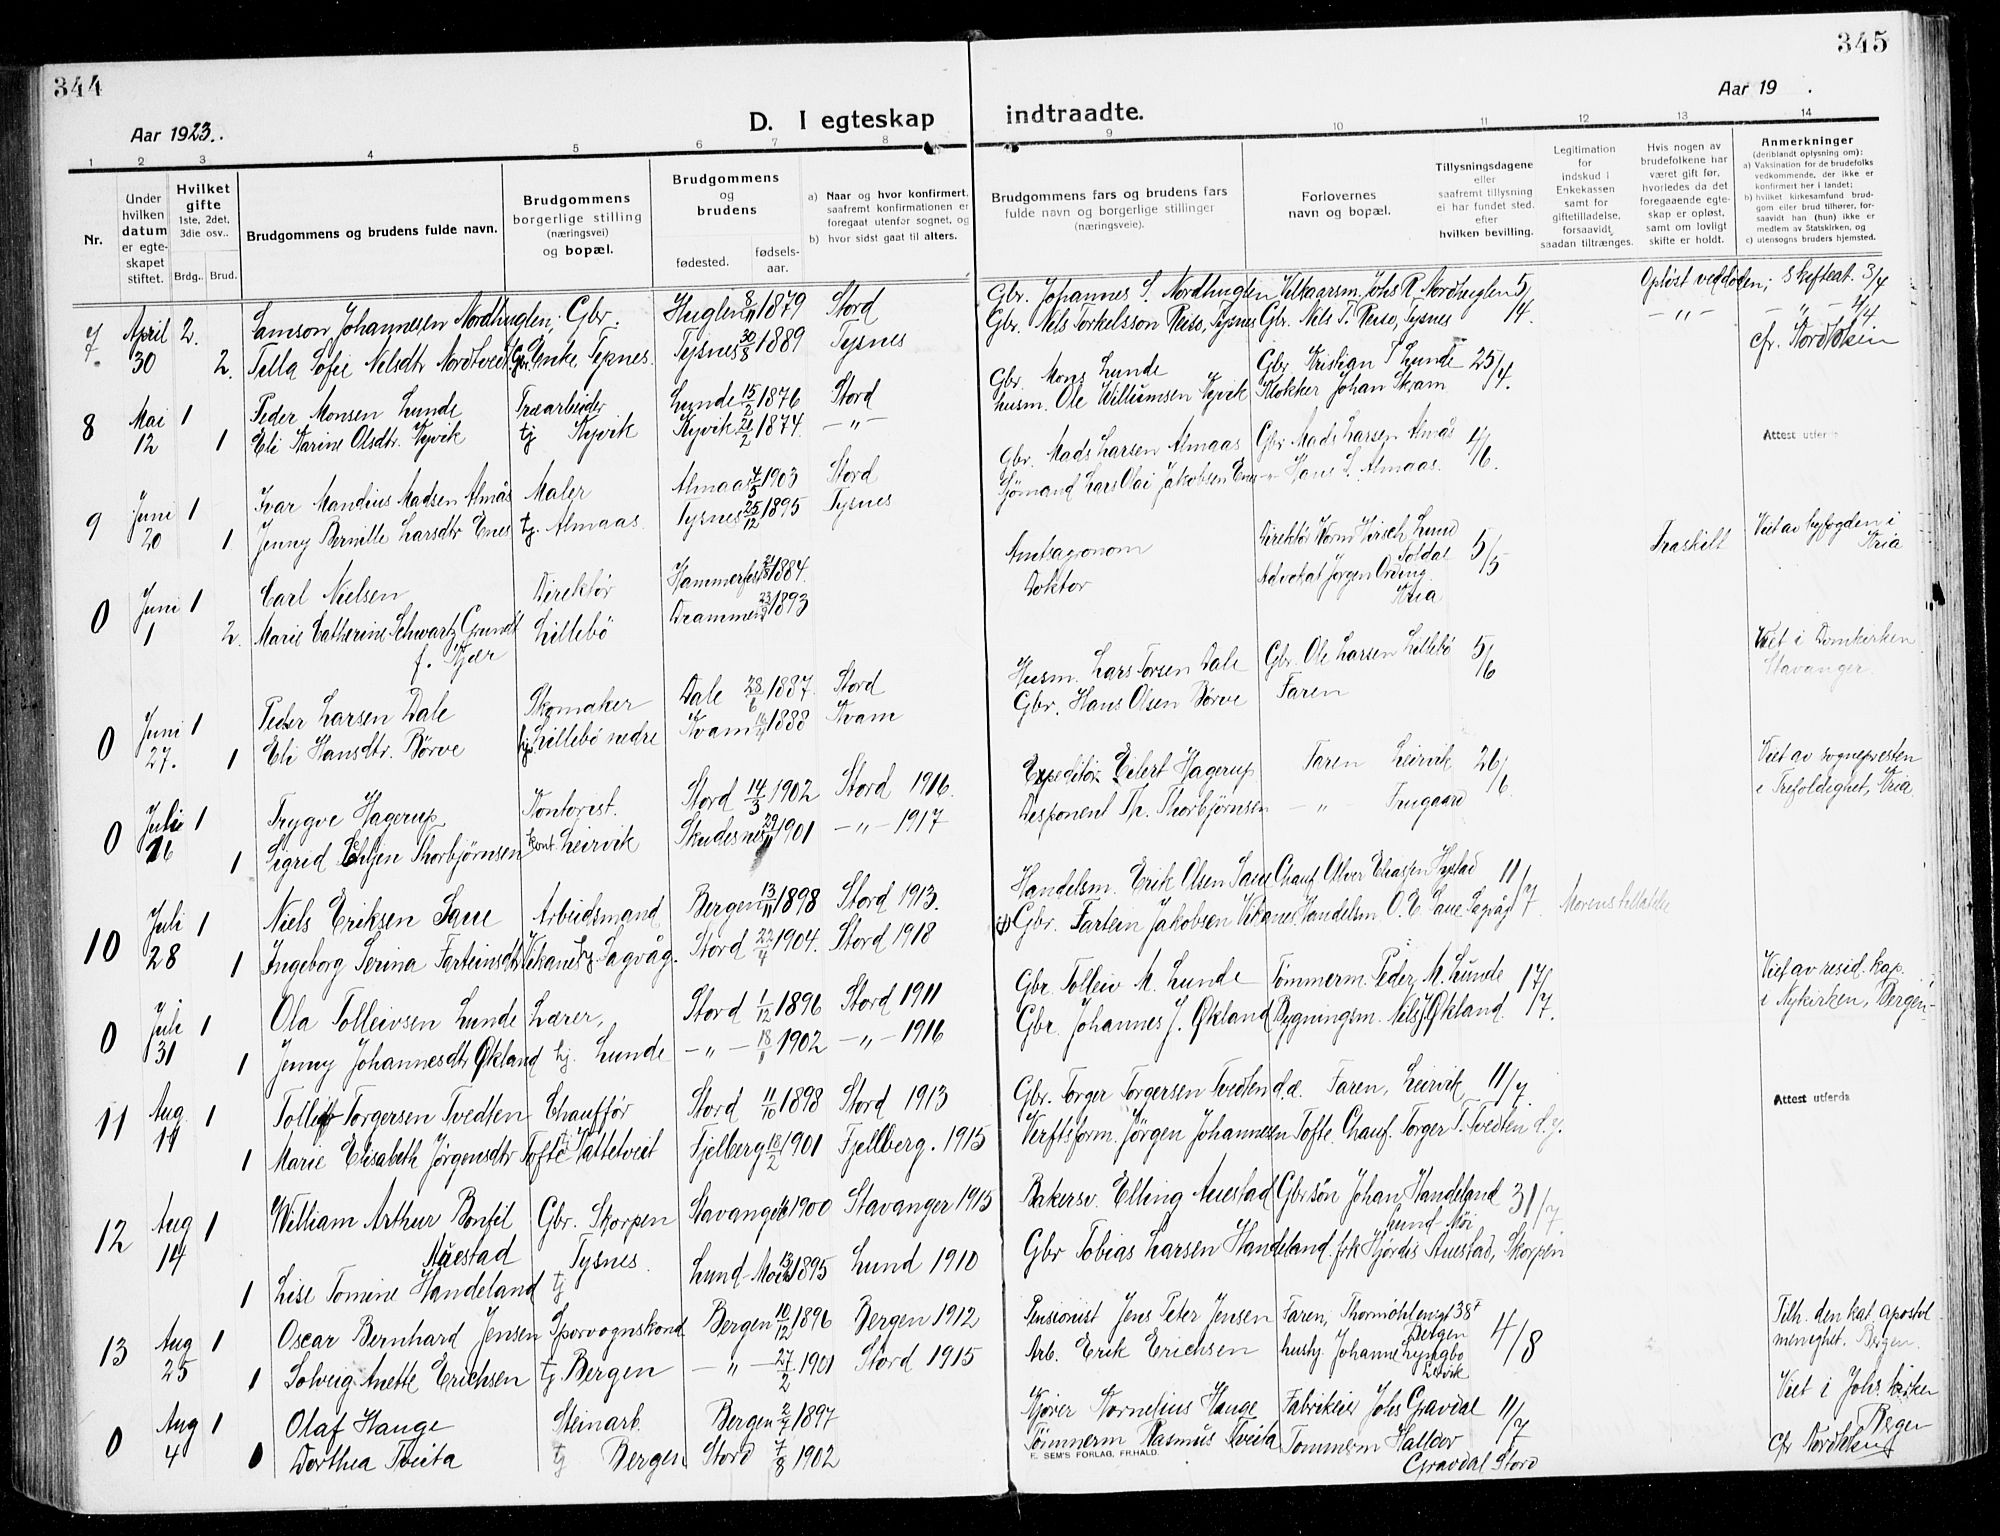 344
345
Aar 1923.
Aar 19 .
D. I egteskap indtraadte.
1 2 3 4 5 6 7 8 9 10 11 12 13 14
Nr.
Under hvilken datum er egteskapet stiftet.
Hvilket gifte 1ste, 2det, 3die osv..
Brdg.. Brud.
Brudgommens og brudens fulde navn.
Brudgommens borgerlige stilling (næringsvei) og bopæl.
Brudgommens og brudens
fødested. fødselsaar.
a) Naar og hvor konfirmert, saafremt konfirmationen er foregaat utenfor sognet, og
b) hvor sidst gaat til alters.
Brudgommens fars og brudens fars fulde navn og borgerlige stillinger (næringsveie).
Forlovernes navn og bopæl.
Tillysningsdagene eller saafremt tillysning ei har fundet sted, efter hvilken bevilling.
Legitimation for indskud i Enkekassen samt for giftetilladelse, forsaavidt saadan tiltrænges.
Hvis nogen av brudefolkene har været gift før, hvorledes da det foregaaende egteskap er opløst, samt om lovligt skifte er holdt.
Anmerkninger (deriblandt oplysning om): a) Vaksination for de brudefolks vedkommende, der ikke er konfirmert her i landet; b) hvilket kirkesamfund brudgom eller brud tilhører, forsaavidt han (hun) ikke er medlem av Statskirken, og c) utensogns bruders hjemsted.
7 April 2. Samson Johannesen Nordhuglen, Gbr. Huglen 1879 Stord Gbr. Johannes S. Nordhuglen Velkaarsm. Johs R. Nordhuglen 5/ Opløst ved døden; Skifteat. 3/4
30 2. Tilla Sofie Nelsdtr Nordtveit Enke, Tysnes. Tysnes 30/8 1889 Tysnes Gbr. Nels Torkelsson Reiso, Tysnes Gbr. Nils T. Reiso, Tysnes 14. — „ — — „ — 4/4
8 Mai 1 Peder Monsen Lunde Træarbeider Lunde 15/2 1876 Stord Gbr. Mons Lunde Gbr. Kristian Lunde 25/4.
12 1 Eli Karine Olsdtr. Kyvik tj Kyvik Kyvik 21/2 1874. — „ — husm. Ole Williumsen Kyvik Klokker Johan Skram
9 Juni 1 Ivar Mandius Madsen Almås Maler Almaas 4/5 1903 Stord Gbr. Mads Larsen Almaas Gbr Mads Larsen Almås 4/6. Attest utferda
20 1 Jenny Bernille Larsdtr Enes tj. Almaas. Tysnes 25/12 1895 Tysnes Sjømand Lars Olai Jakobsen Enes Hans L. Almaas.
0 Juni 1 Carl Nielsen Direktør Hammerfest 1884. Amtagronom Direktør Worm Hirsch Lund Soldal 5/5 Fraskilt Viet av byfogden i Kria
1 2. Marie Catherine Schwartz Grundt f. Kjær Lillebö Drammen 1893 Doktor Advokat Jørgen Kria
0 Juni 1 Peder Larsen Dale Skomaker Dale 28/6 1887. Stord Husm. Lars Torsen Dale Gbr. Ole Larsen Lillebø 5/6 Viet i Domkirken Stavanger.
27. 1 Eli Hansdtr. Börve Lillebö nedre Kvam 1888 Kvam Gbr. Hans Olsen Börve Faren
0 Julie 1 Trygve Hagerup Kontorist. Stord 14/5 1902 Stord 1916. Expeditör Eilert Hagerup Faren Leirvik 26/6 Viet av sognepresten i Trefoldighet, Kria
16 1 Sigrid Thorbjörnsen kont. Leirvik Skudesnes 29/11 1901 — „ — 1917 Disponent Th. Thorbjörnsen — „ — Frugaard
10 Juli 1 Niels Eriksen Saue Arbeidsmand Bergen 13/11 1898 Stord 1913. Handelsm. Erik Olsen Saue Chauf Olver Eliassen Hystad 11/7 Morens tilladelse
28 1 Ingeborg Serina Farteinsdtr Vikanes tj Sagvåg. Stord 22/4 1904. Stord 1918 Gbr. Fartein Jakobsen Vikanes Handelsm. O. E. Saue Sagvåg
0 Juli 1 Ola Tolleivsen Lunde Lærer, Stord 1/12 1896 Stord 1911 Gbr. Tolleiv M. Lunde Tömmerm. Peder M. Lunde 17/7. Viet av resid. kap. i Nykirken, Bergen-
31 1 Jenny Johannesdtr Økland hj. Lunde — „ — 1902 — „ — 1916 Gbr. Johannes J. Økland Bygningsm. Nils J Økland.
11 Aug. 1 Torgersen Tvedten Chauffør Stord 11/10 1898 Stord 1913 Gbr. Torger Torgersen Tvedten d.e. Faren, Leirvik 11/7 Attest utferda
11 1 Marie Elisabeth Jörgensdtr Tofte Vattetveit Fjelberg 18/2 1901 Fjellberg. 1915 Verftsform. Jörgen Johannesen Tofte. Chauf. Torger T. Tvedten d.y.
12 Aug 1 William Arthur Bontil Auestad Gbr. Skorpen Tysnes. Stavanger 1900 Stavanger 1915 Bakersv. Elling Auestad Gbrsön Johan Handeland Lund Möi 31/7
14 1 Lise Tomine Handeland tj Lund-Moi 1895 Lund 1910 Gbr Tobias Larsen Handeland. frk Hjördis Auestad, Skorpen
13 Aug 1 Oscar Bernhard Jensen Sporvognskond. Bergen 10/12 1896 Bergen 1912 Pensionist Jens Peter Jensen Faren, Thormöhlensgt 38 Bergen 4/8 Tilh. den kat. apostol menighet. Bergen.
25 1 Solveig Anette Erichsen tj. Bergen — „ — 27/2 1901 Stord 1915 Arb. Erik Erichsen hushj. Johanne Lyngbo Leirvik
0 Aug 1 Olaf Hauge Steinarb. Bergen 2/7 1897 Kjörer Kornelius Hauge Fabrikeier Johs Gravdal 11/7 Viet i Johs. kirken Bergen
4 0 Dorthea Tveita tj Bergen Stord 7/8 1902 Tömmerm Rasmus Tveita Tømmerm Halldor Gravdal Stord
E. SEM'S FORLAG, FR.HALD.